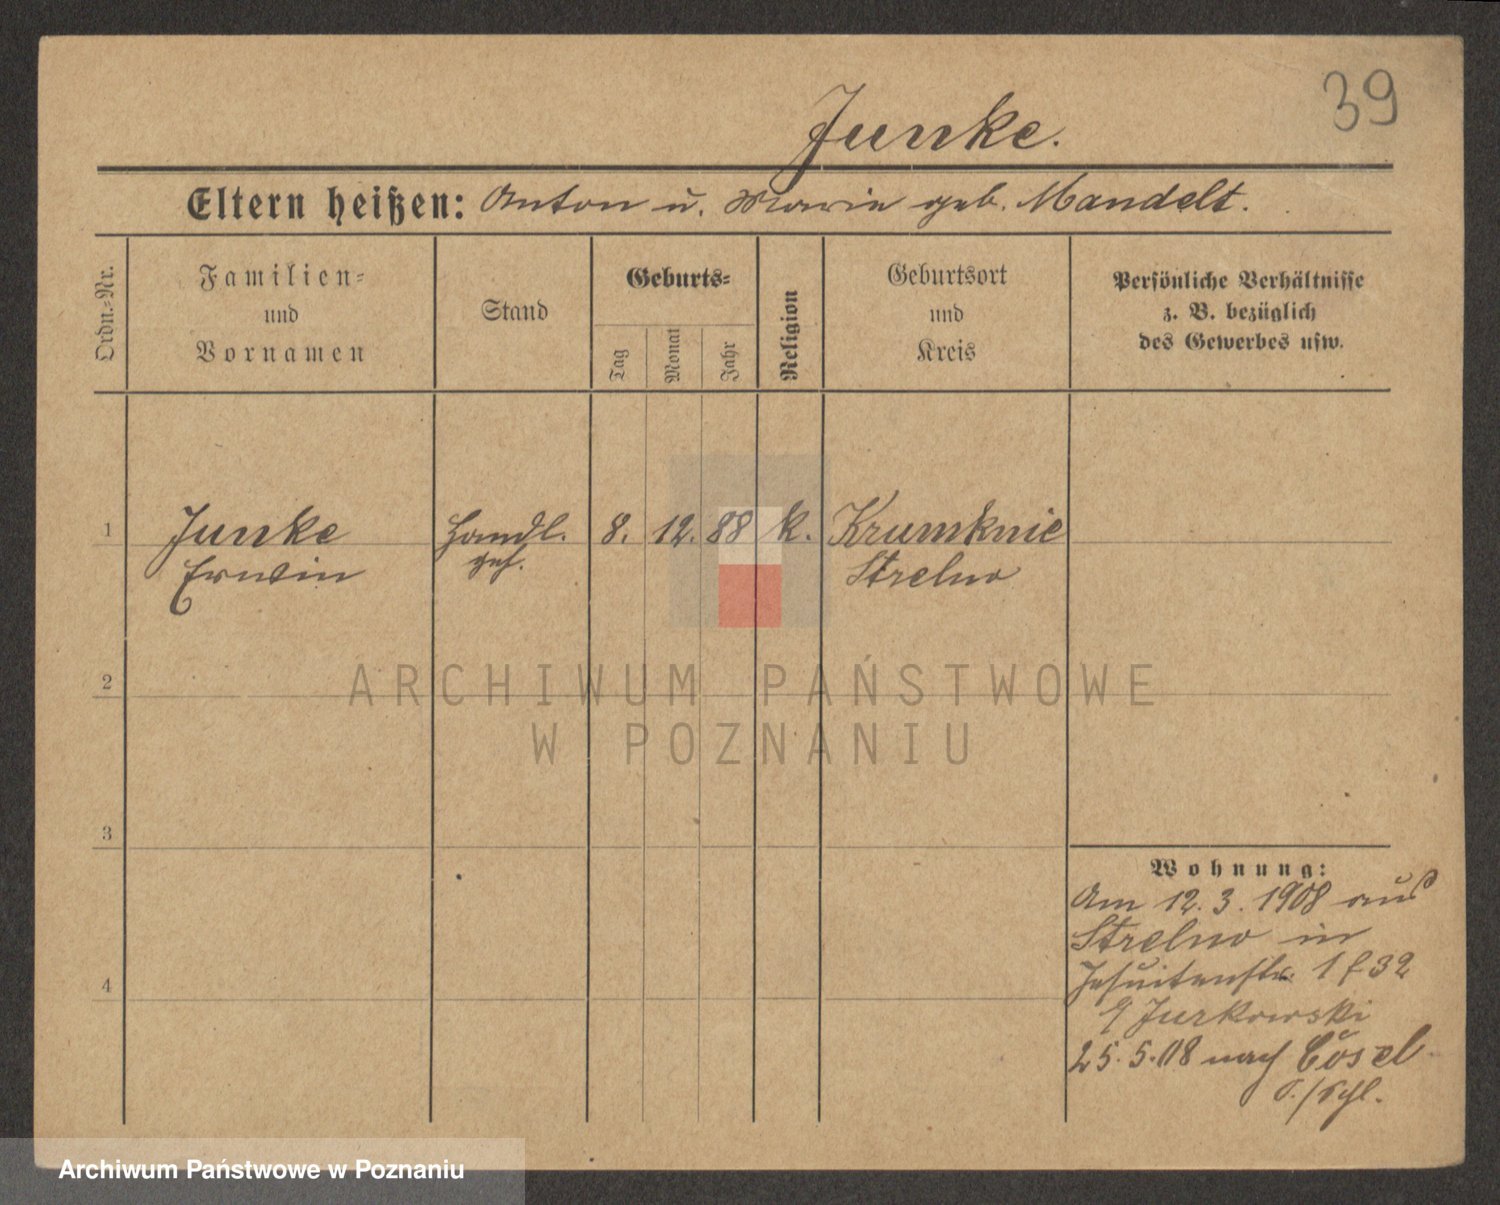 39
Junke.
Eltern heißen: Anton u. Marie geb. Mandelt.
Ordn.-Nr.
Familien-
und
Vornamen
Stand
Geburts-
Tag
Monat
Jahr
Religion
Geburtsort
und
Kreis
Persönliche Verhältnisse
z. B. bezüglich
des Gewerbes usw.
1 Junke Handl. 8. 12. 88 k. Krumknie
Erwin geh. Strelno
2
3
4
Wohnung:
Am 12. 3. 1908 aus
Strelno in
Jesuitenstr. 1 f 32
Jurkowski
25. 5. 08 nach Cosel
O./Schl.
ARCHIWUM PAŃSTWOWE
W POZNANIU
Archiwum Państwowe w Poznaniu